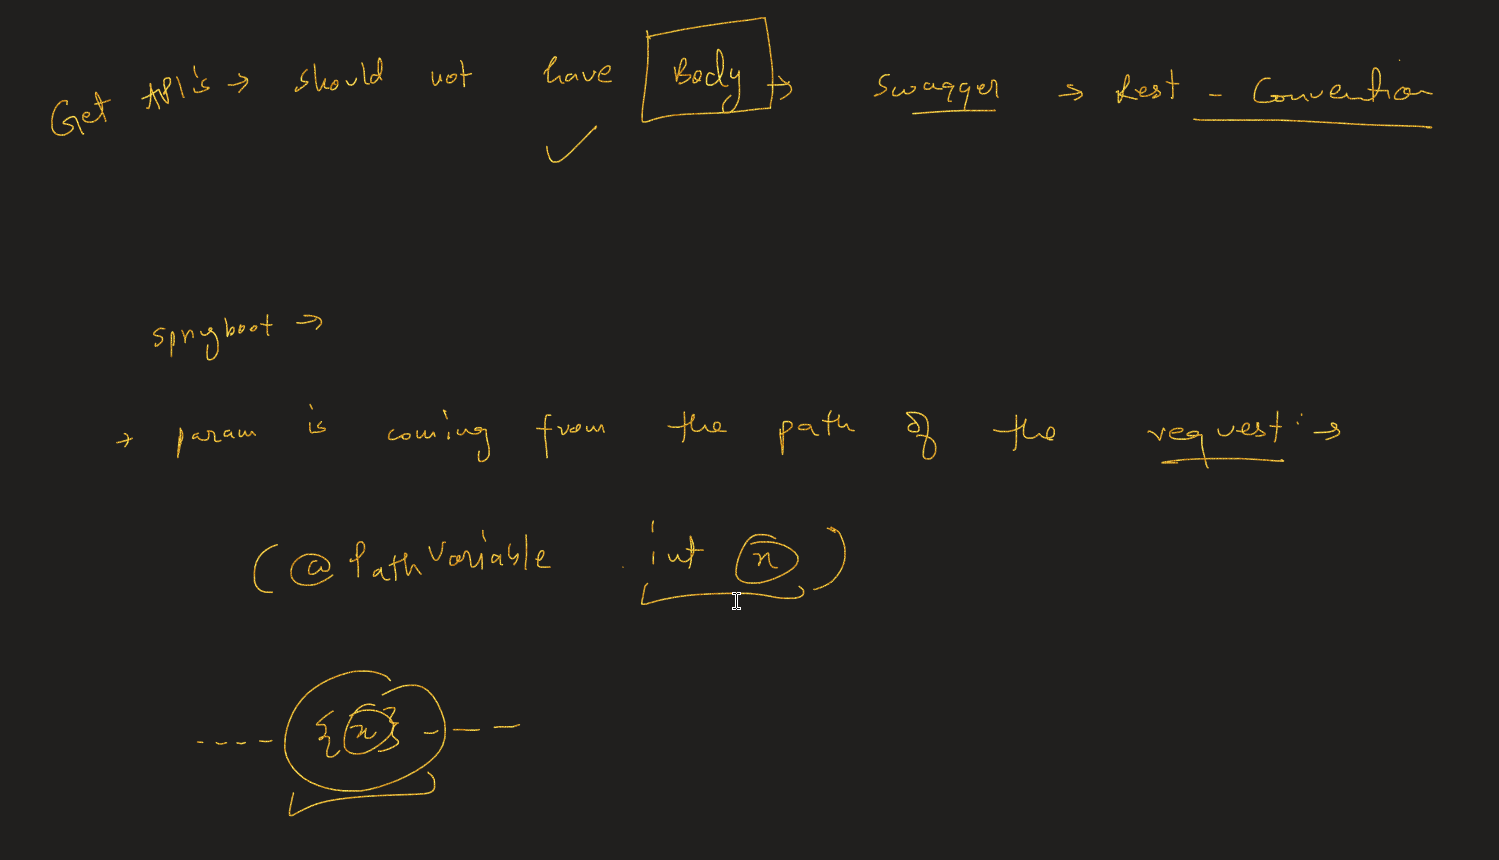 Get API's → should not have Body → Swagger → Rest - Convention
springboot →
→ param is coming from the path of the request: →
(@PathVariable int n)
---- {n} - — —